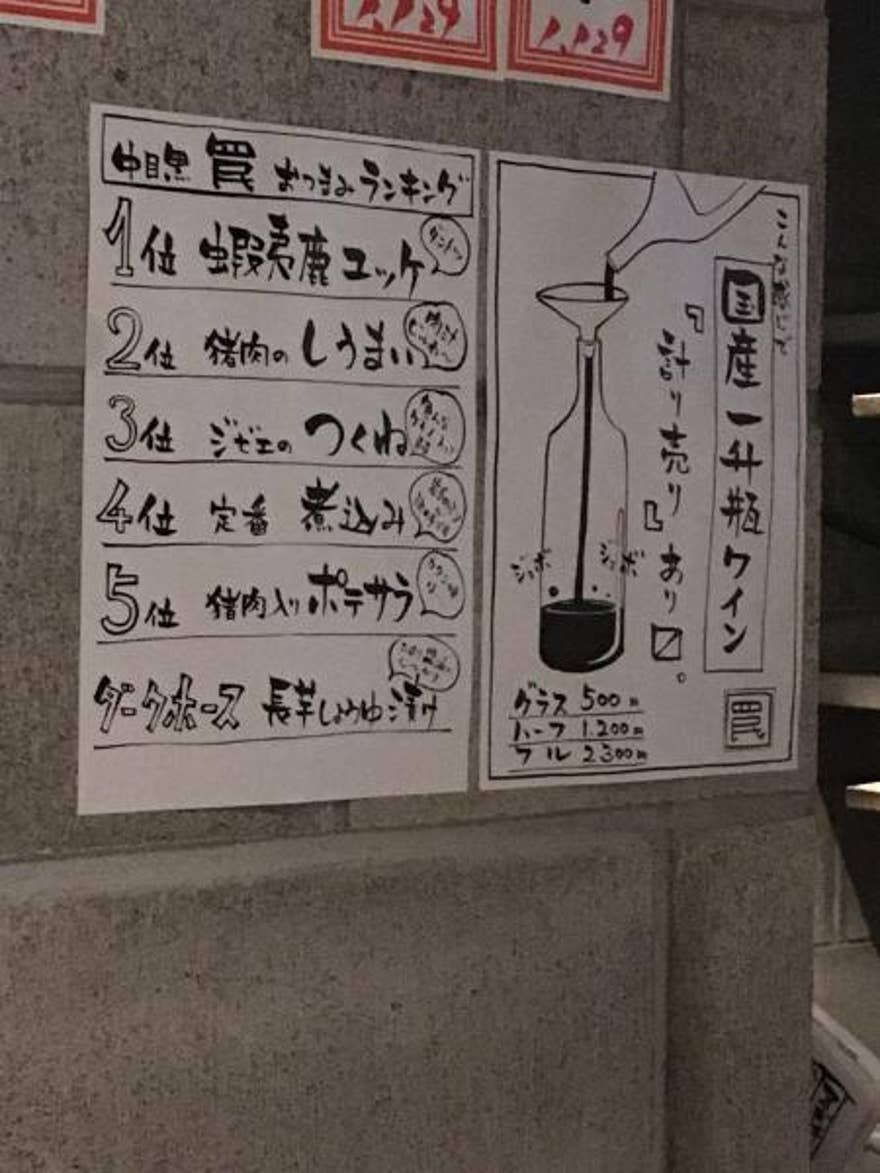 1,129
1,129
中目黒 罠 おつまみランキング
1位 蝦夷鹿ユッケ
ダントツ
2位 猪肉のしうまい
3位 ジビエのつくね
4位 定番 煮込み
5位 猪肉入りポテサラ
ダークホース 長芋しょうゆ漬け
こんな感じで
国産一升瓶ワイン
『計り売り』あり〼。
ジョボ
ジョボ
グラス 500円
ハーフ 1.200円
フル 2300円
罠